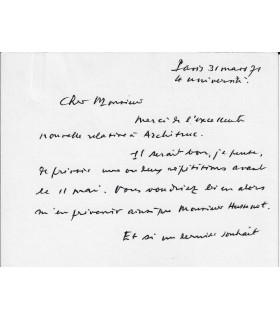 Paris 31 mars 71
4 université.
Cher Monsieur
Merci de l'excellente
nouvelle relative à Architruc.
Il serait bon, je pense,
de prévoir une ou deux répétitions avant
le 11 mai. Vous voudriez bien alors
m'en prévenir ainsi que Monsieur
Et si un dernier souhait